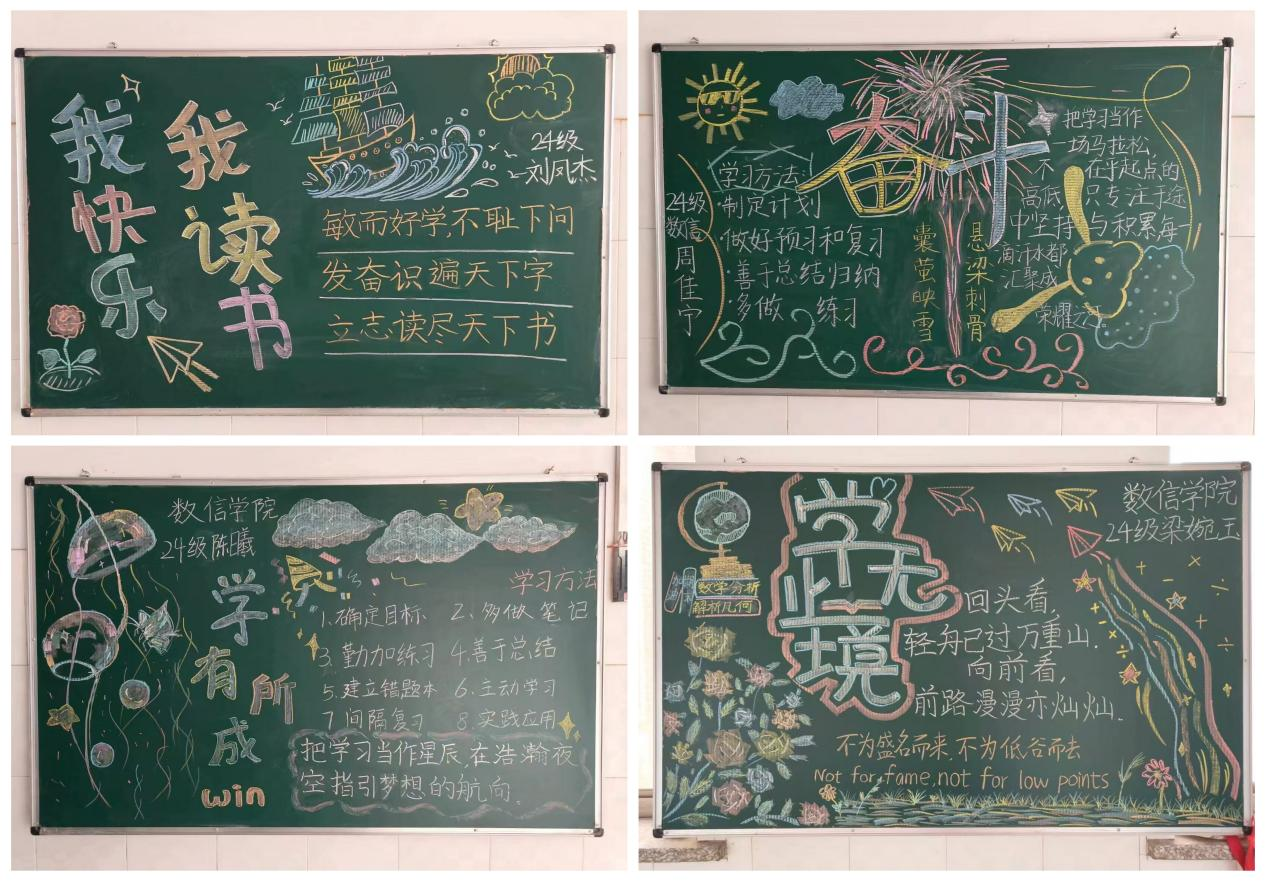 我读书
我快乐
24级
刘凤杰
敏而好学,不耻下问
发奋识遍天下字
立志读尽天下书
奋斗
24级
数信
周佳宁
学习方法:
·制定计划
·做好预习和复习
·善于总结归纳
·多做 练习
囊萤映雪
悬梁刺骨
把学习当作
一场马拉松
不 在乎起点的
高低 只专注于途
中坚持与积累,每一
滴汗水都
汇聚成
荣耀
数信学院
24级陈曦
学有所成
win
学习方法
1.确定目标 2.多做笔记
3.勤加练习 4.善于总结
5.建立错题本 6.主动学习
7.间隔复习 8.实践应用
把学习当作星辰,在浩瀚夜
空指引梦想的航向。
数学分析
解析几何
学无止境
数信学院
24级梁婉玉
回头看,
轻舟已过万重山.
向前看,
前路漫漫亦灿灿.
不为盛名而来,不为低谷而去
Not for fame,not for low points